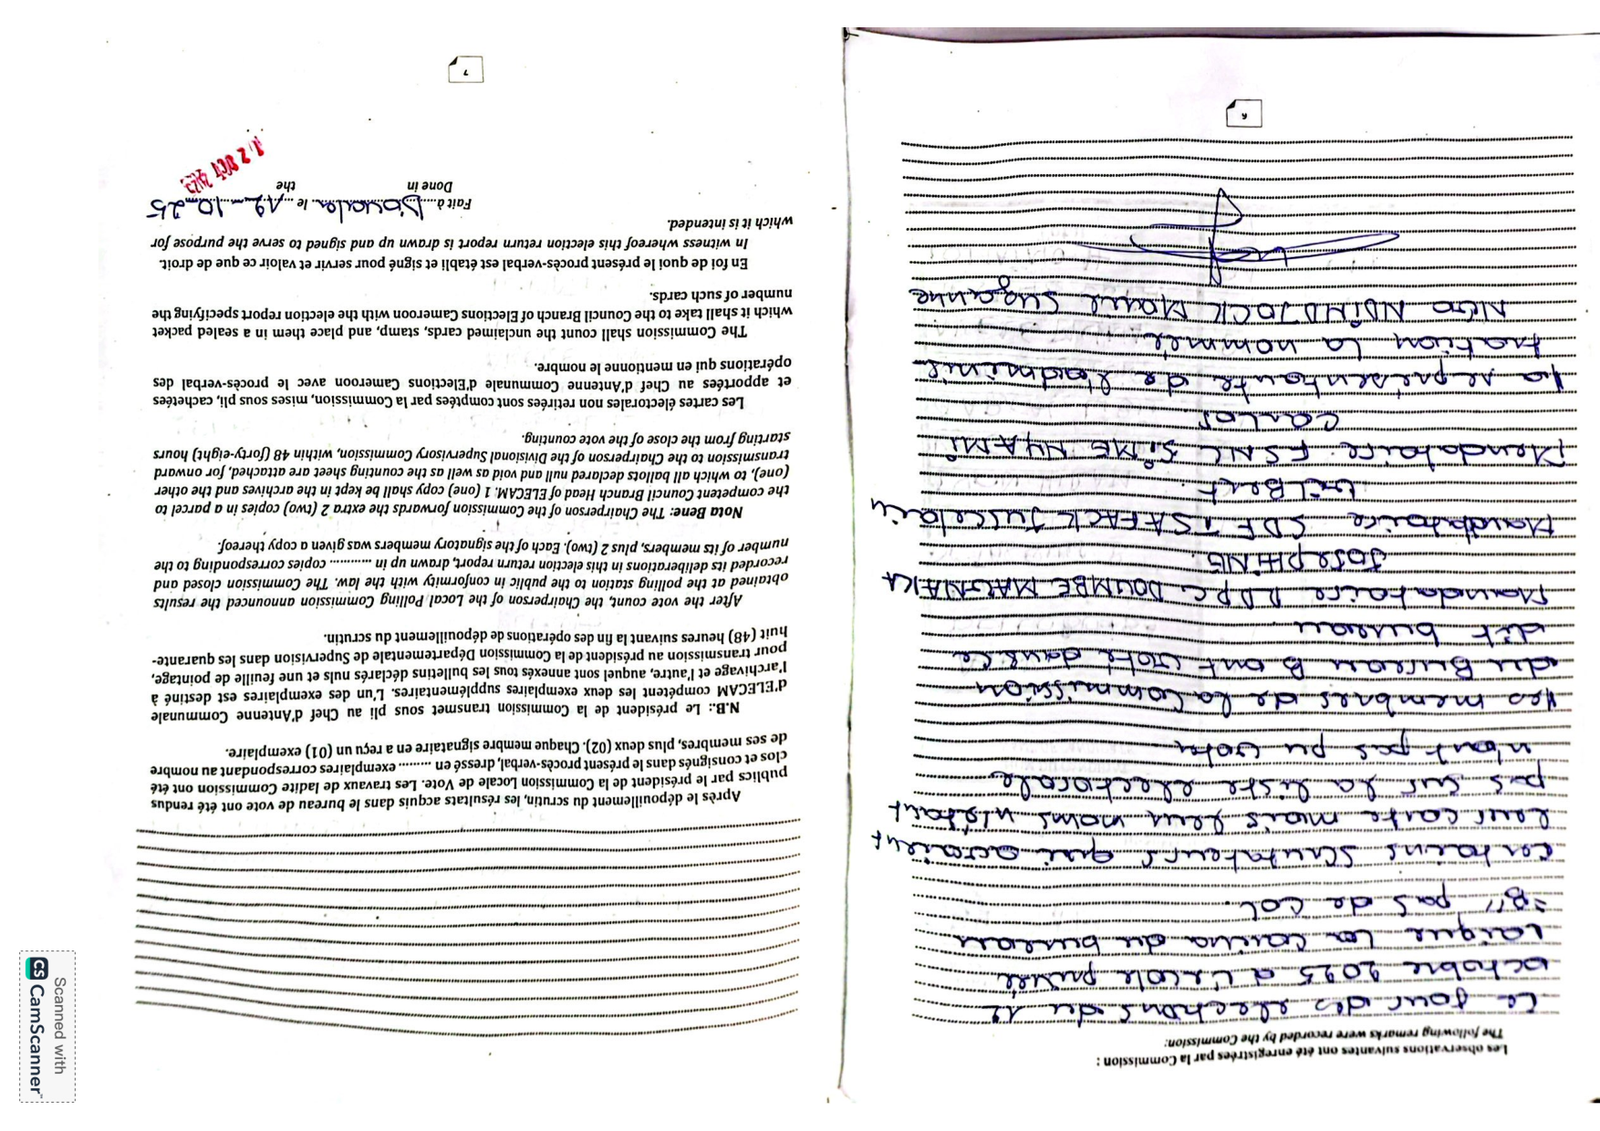 Les observations suivantes ont été enregistrées par la Commission :
The following remarks were recorded by the Commission:
Le jour des elections du 12
octobre 2025 a l'ecole privée
Laique La carina du bureau
"B" pas de col.
Certains scrutateurs qui avaient
leur carte mais leur noms n'étant
pas sur la liste electorale
n'ont pas pu voter
Les membres de la Commission
du Bureau B ont voté dans ce
dit bureau
Mandataire RDPC DOUMBE MAKONAKA
JosepHiNE
Mandataire SDF TSAFACK Juscelain
WilBert
Mandataire FSNC SiME NYAMI
Carlos
La représentante de l'adminis
tration La nommée
NGO NDiNDJOCK Marie Suzanne
6
Après le dépouillement du scrutin, les résultats acquis dans le bureau de vote ont été rendus
publics par le président de la Commission Locale de Vote. Les travaux de ladite Commission ont été
clos et consignés dans le présent procès-verbal, dressé en ......... exemplaires correspondant au nombre
de ses membres, plus deux (02). Chaque membre signataire en a reçu un (01) exemplaire.
N.B.: Le président de la Commission transmet sous pli au Chef d'Antenne Communale
d'ELECAM compétent les deux exemplaires supplémentaires. L'un des exemplaires est destiné à
l'archivage et l'autre, auquel sont annexés tous les bulletins déclarés nuls et une feuille de pointage,
pour transmission au président de la Commission Départementale de Supervision dans les quarante-
huit (48) heures suivant la fin des opérations de dépouillement du scrutin.
After the vote count, the Chairperson of the Local Polling Commission announced the results
obtained at the polling station to the public in conformity with the law. The Commission closed and
recorded its deliberations in this election return report, drawn up in ............ copies corresponding to the
number of its members, plus 2 (two). Each of the signatory members was given a copy thereof.
Nota Bene: The Chairperson of the Commission forwards the extra 2 (two) copies in a parcel to
the competent Council Branch Head of ELECAM. 1 (one) copy shall be kept in the archives and the other
(one), to which all ballots declared null and void as well as the counting sheet are attached, for onward
transmission to the Chairperson of the Divisional Supervisory Commission, within 48 (forty-eight) hours
starting from the close of the vote counting.
Les cartes électorales non retirées sont comptées par la Commission, mises sous pli, cachetées
et apportées au Chef d'Antenne Communale d'Elections Cameroon avec le procès-verbal des
opérations qui en mentionne le nombre.
The Commission shall count the unclaimed cards, stamp, and place them in a sealed packet
which it shall take to the Council Branch of Elections Cameroon with the election report specifying the
number of such cards.
En foi de quoi le présent procès-verbal est établi et signé pour servir et valoir ce que de droit.
In witness whereof this election return report is drawn up and signed to serve the purpose for
which it is intended.
Fait à .... Douala le ... 12-10-25
Done in the
12 OCT 2025
7
Scanned with
CS CamScanner